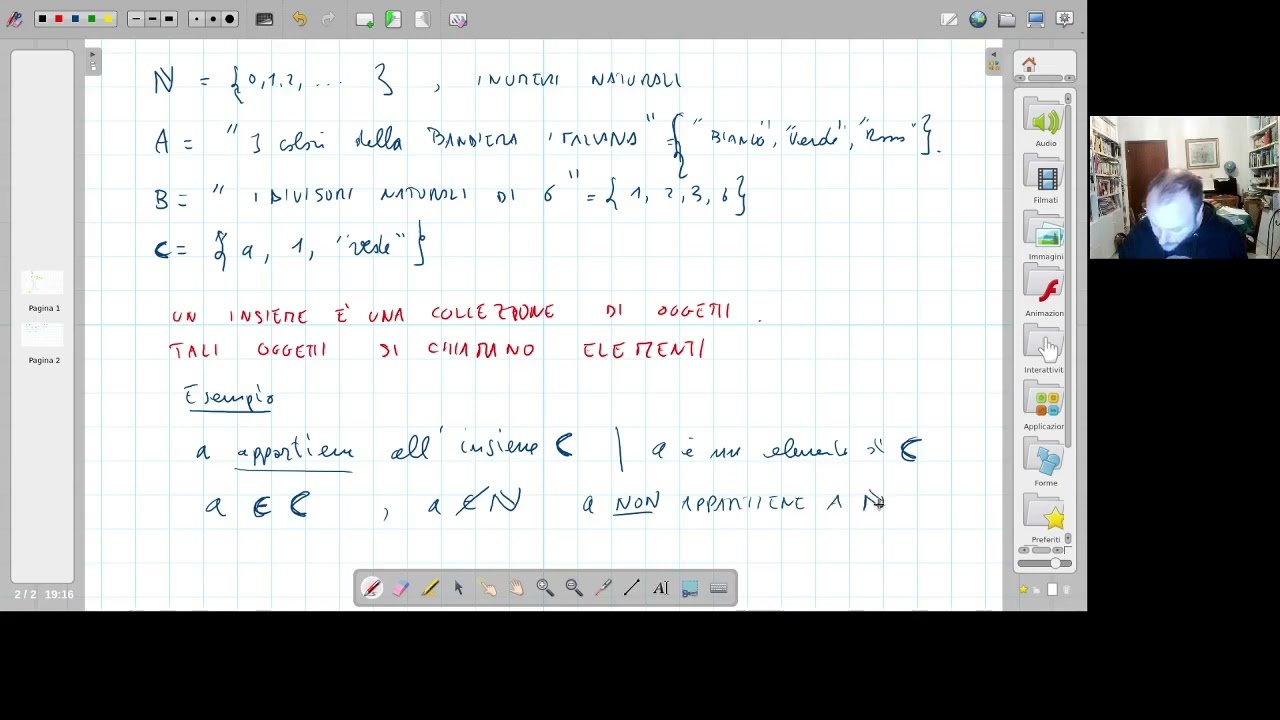 ℕ = {0,1,2, .... } , I NUMERI NATURALI
A = " I colori della BANDIERA ITALIANA" = { "BIANCO", "Verde", "Rosso" }.
B = " I DIVISORI NATURALI DI 6 " = { 1, 2, 3, 6 }
C = { a, 1, "verde" }
UN INSIEME È UNA COLLEZIONE DI OGGETTI .
TALI OGGETTI SI CHIAMANO ELEMENTI
Esempio
a appartiene all' insieme C | a è un elemento di C
a ∈ C , a ∉ ℕ a NON APPARTIENE A ℕ
Pagina 1
Pagina 2
2 / 2 19:16
Audio
Filmati
Immagini
Animazion
Interattivit
Applicazion
Forme
Preferiti